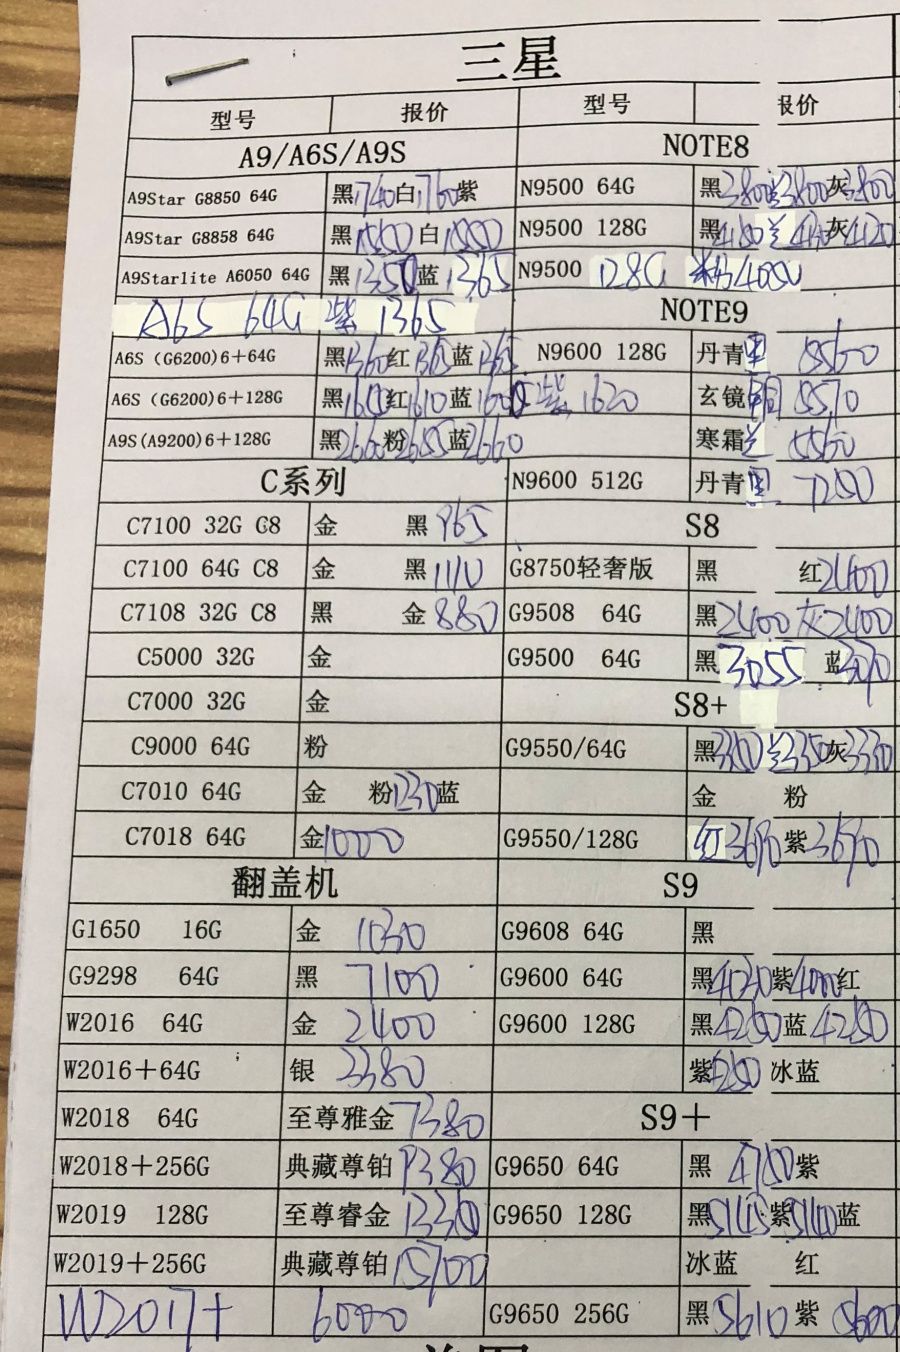 三星
型号 报价 型号 报价
A9/A6S/A9S NOTE8
A9Star G8850 64G 黑1740白1760紫 N9500 64G 黑3800兰3800灰3800
A9Star G8858 64G 黑1550白1550 N9500 128G 黑4150兰 灰4120
A9Starlite A6050 64G 黑1350蓝1365 N9500 128G 粉4050
A6S 64G 紫 1365 NOTE9
A6S (G6200)6+64G 黑1360红1365蓝1365 N9600 128G 丹青黑 5560
A6S (G6200)6+128G 黑 红1610蓝 紫1620 玄镜铜 5570
A9S(A9200)6+128G 黑2660粉2655蓝2660 寒霜兰 5560
C系列 N9600 512G 丹青黑 7250
C7100 32G C8 金 黑965 S8
C7100 64G C8 金 黑1110 G8750轻奢版 黑 红2400
C7108 32G C8 黑 金880 G9508 64G 黑2400灰2400
C5000 32G 金 G9500 64G 黑3055 蓝3070
C7000 32G 金 S8+
C9000 64G 粉 G9550/64G 黑3350兰3350灰3330
C7010 64G 金 粉1230蓝 金 粉
C7018 64G 金1000 G9550/128G 红3690紫3690
翻盖机 S9
G1650 16G 金 1030 G9608 64G 黑
G9298 64G 黑 7100 G9600 64G 黑4030紫4000红
W2016 64G 金 2400 G9600 128G 黑4250蓝4250
W2016+64G 银 3380 紫 冰蓝
W2018 64G 至尊雅金7380 S9+
W2018+256G 典藏尊铂9380 G9650 64G 黑 4750紫
W2019 128G 至尊睿金13350 G9650 128G 黑5145紫5140蓝
W2019+256G 典藏尊铂15700 冰蓝 红
W2017+ 6000 G9650 256G 黑5610紫5600